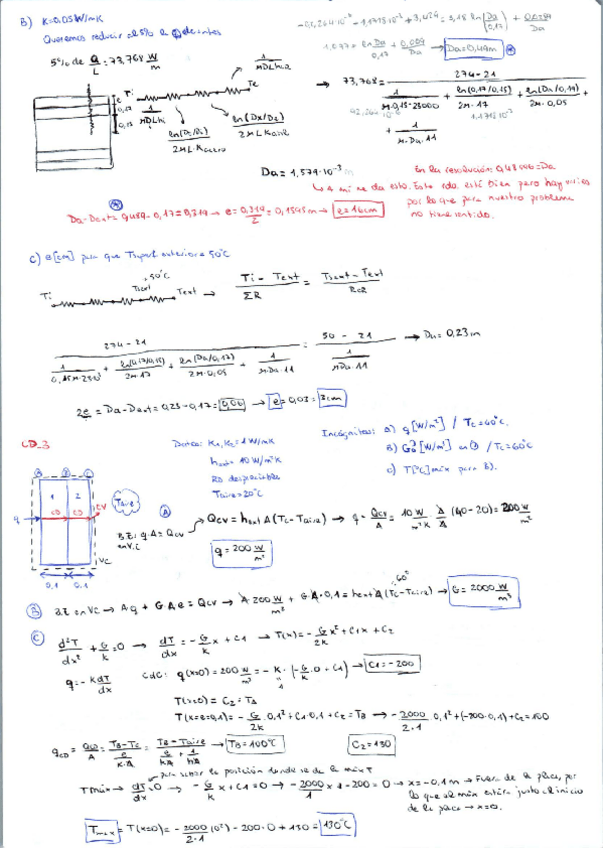 B) K=0.05 W/mK
Queremos reducir al 5% la Q de antes
5% de Q/L = 73,768 W/m
Ti Te
1/πDLhi
ln(D1/D2)/2πLKacero
ln(Dx/De)/2πLKaire
→ 73,768 = (274-21) / (1/(π·0,15·25000) + ln(0,17/0,15)/(2π·17) + ln(Da/0,17)/(2π·0,05) + 1/(π·Da·11))
→ Da=0,49m
Da = 1,579·10⁻³ m
↳ A mi me da esto. Este rdo. está bien pero hay varios
por lo que para nuestro problema
no tiene sentido.
En la resolución: 0,48906=Da
Da-Dext = 0,489-0,17=0,319 → e = 0,319/2 = 0,1595m → e=16cm
C) e[cm] para que Tsupf exterior = 50ºC
Ti Tsext →50ºC Text → (Ti - Text)/ΣR = (Tsext - Text)/Rcv
(274-21) / (1/(0,15π·25·10³) + ln(0,17/0,15)/(2π·17) + ln(Da/0,17)/(2π·0,05) + 1/(π·Da·11)) = (50-21) / (1/(πDa·11)) → Da=0,23m
2e = Da-Dext = 0,23-0,17 = 0,06 → e = 0,03 = 3cm
CD_3
Datos: K1,K2=1W/mK
hext=10 W/m²K
RD despreciable
Taire=20ºC
Incógnitas: a) q [W/m²] / Tc=40ºC.
B) G? [W/m³] en ① / Tc=60ºC
c) T[ºC] máx para B).
A B C
1 2
q CD CD CV
Taire
VC
0,1 0,1
A
B.E: q·A = Qcv
en V.C
Qcv = hext A (Tc-Taire) → q = Qcv/A = 10 W/m²K A/A (40-20) = 200 W/m²
q = 200 W/m²
B B.E en VC → Aq + G·A·e = Qcv → A·200 W/m² + G·A·0,1 = hext A (Tc-Taire) → G = 2000 W/m³
60º
C d²T/dx² + G/k = 0 → dT/dx = -G/k x + C1 → T(x) = -G/2k x² + C1x + C2
q = -k dT/dx
CdC: q(x=0) = 200 W/m² = -K·(-G/k·0 + C1) → C1=-200
T(x=0) = C2 = TA
T(x=e=0,1) = -G/2k·0,1² + C1·0,1 + C2 = TB → -2000/2·1·0,1² + (-200·0,1) + C2 = 100
qCD = QCD/A = (TB-TC)/(e/k·A) = (TB-Taire)/(e/k + 1/hA) → TB=100ºC
C2=130
→ para saber la posición donde se da la máx T
Tmáx → dT/dx = 0 → -G/k x + C1 = 0 → -2000/1 x - 200 = 0 → x = -0,1m → Fuera de la placa, por
lo que el máx estára justo al inicio
de la placa → x=0.
Tmax = T(x=0) = -2000/2·1 (0²) - 200·0 + 130 = 130ºC